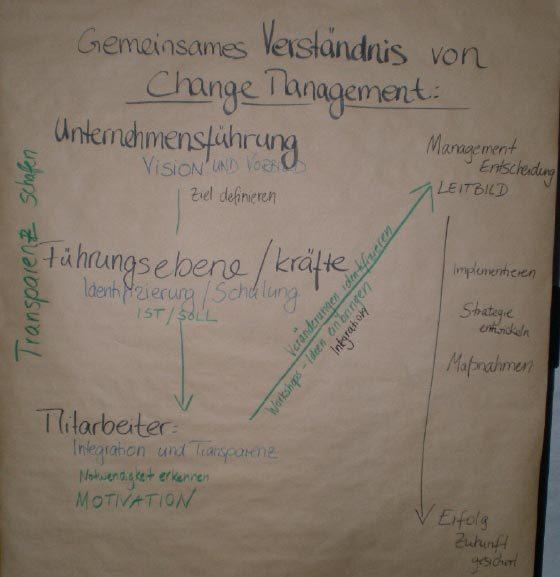 Gemeinsames Verständnis von
Change Management:
Transparenz schafen
Unternehmensführung
VISION UND VORBILD
Ziel definieren
Führungsebene / kräfte
Identifizierung / Schulung
IST / SOLL
Mitarbeiter:
Integration und Transparenz
Notwendigkeit erkennen
MOTIVATION
Veränderungen identifizieren
Workshops - Ideen einbringen
Integration
Management
Entscheidung
LEITBILD
Implementieren
Strategie
entwickeln
Maßnahmen
Erfolg
Zukunft
gesichert